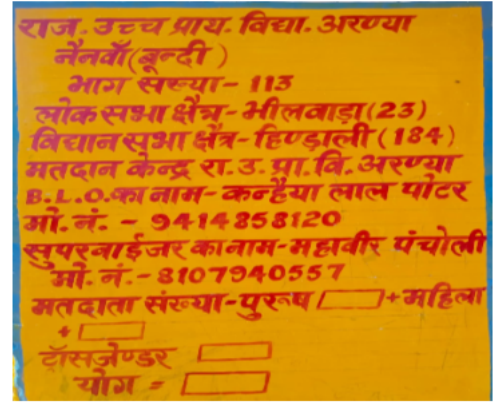 राज. उच्च प्राय. विद्या. अरण्या
नैनवाँ(बून्दी)
भाग सख्या- 113
लोक सभा क्षैत्र-भीलवाड़ा(23)
विधान सभा क्षैत्र-हिण्डोली(184)
मतदान केन्द्र रा.उ.प्रा.वि.अरण्या
B.L.O.का नाम-कन्हैया लाल पोटर
मो.नं. - 9414858120
सुपरवाईजर का नाम-महावीर पंचोली
मो.नं.-8107940557
मतदाता संख्या-पुरूष +महिला
+
ट्रॉसजेण्डर
योग =